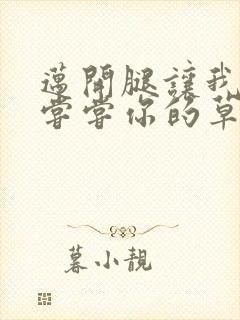 邁開腿讓我
嘗嘗你的草
暮小靚